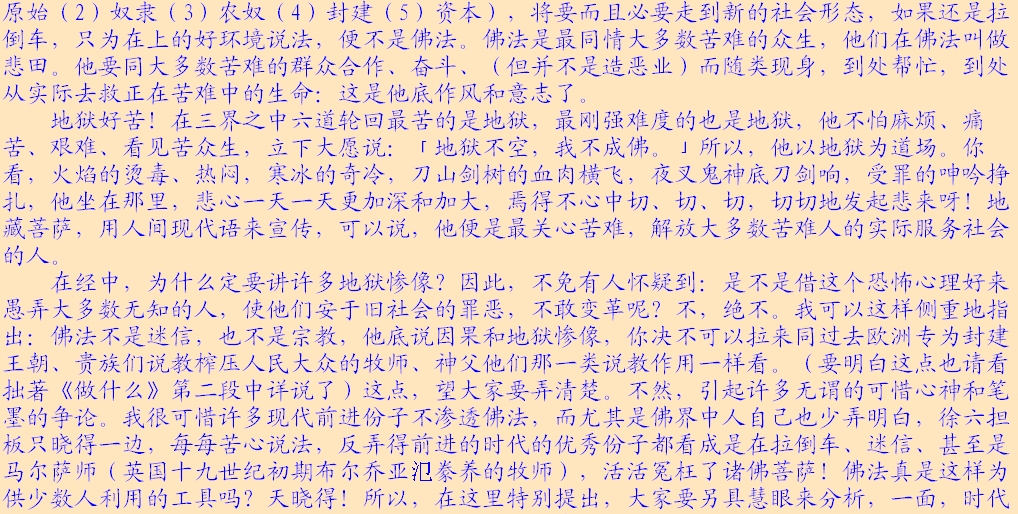 原始（2）奴隶（3）农奴（4）封建（5）资本），将要而且必要走到新的社会形态，如果还是拉
倒车，只为在上的好环境说法，便不是佛法。佛法是最同情大多数苦难的众生，他们在佛法叫做
悲田。他要同大多数苦难的群众合作、奋斗、（但并不是造恶业）而随类现身，到处帮忙，到处
从实际去救正在苦难中的生命：这是他底作风和意志了。
地狱好苦！在三界之中六道轮回最苦的是地狱，最刚强难度的也是地狱，他不怕麻烦、痛
苦、艰难、看见苦众生，立下大愿说：「地狱不空，我不成佛。」所以，他以地狱为道场。你
看，火焰的烫毒、热闷，寒冰的奇冷，刀山剑树的血肉横飞，夜叉鬼神底刀剑响，受罪的呻吟挣
扎，他坐在那里，悲心一天一天更加深和加大，焉得不心中切、切、切，切切地发起悲来呀！地
藏菩萨，用人间现代语来宣传，可以说，他便是最关心苦难，解放大多数苦难人的实际服务社会
的人。
在经中，为什么定要讲许多地狱惨像？因此，不免有人怀疑到：是不是借这个恐怖心理好来
愚弄大多数无知的人，使他们安于旧社会的罪恶，不敢变革呢？不，绝不。我可以这样侧重地指
出：佛法不是迷信，也不是宗教，他底说因果和地狱惨像，你决不可以拉来同过去欧洲专为封建
王朝、贵族们说教榨压人民大众的牧师、神父他们那一类说教作用一样看。（要明白这点也请看
拙著《做什么》第二段中详说了）这点，望大家要弄清楚。不然，引起许多无谓的可惜心神和笔
墨的争论。我很可惜许多现代前进份子不渗透佛法，而尤其是佛界中人自己也少弄明白，徐六担
板只晓得一边，每每苦心说法，反弄得前进的时代的优秀份子都看成是在拉倒车、迷信、甚至是
马尔萨师（英国十九世纪初期布尔乔亚氾豢养的牧师），活活冤枉了诸佛菩萨！佛法真是这样为
供少数人利用的工具吗？天晓得！所以，在这里特别提出，大家要另具慧眼来分析，一面，时代